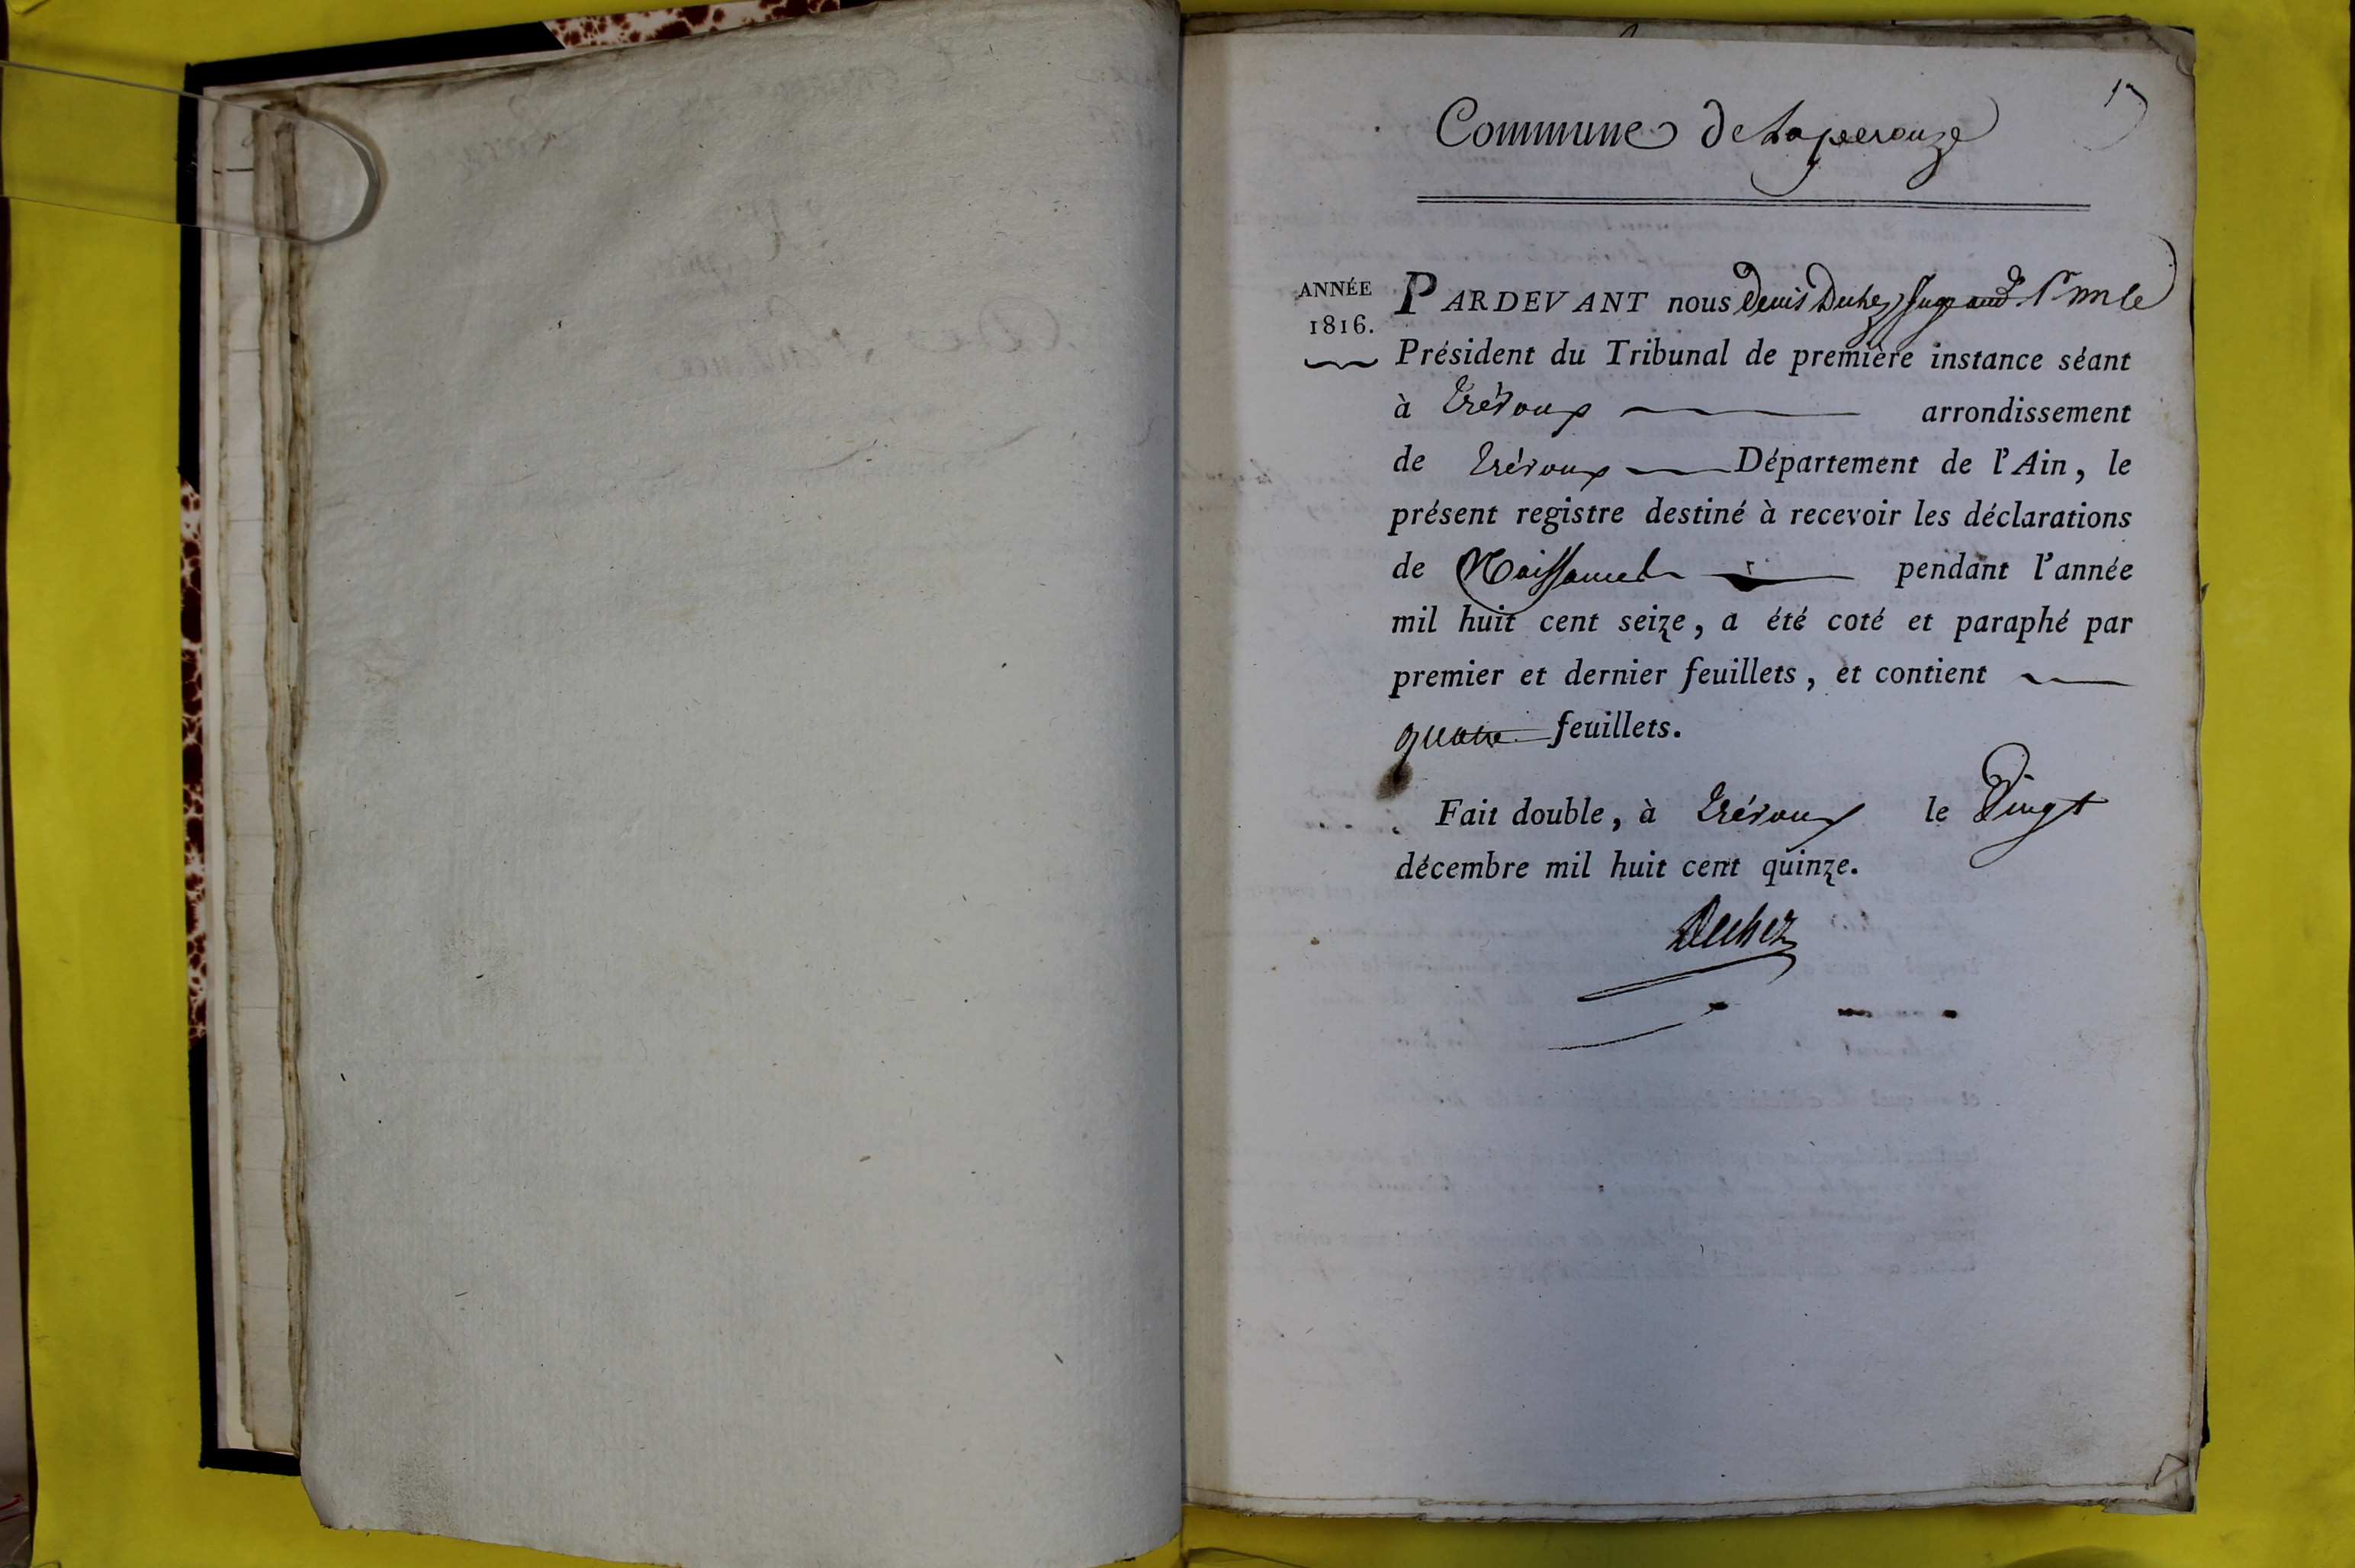 Commune de Laperouze
ANNÉE
1816.
PARDEVANT nous Denis Duchez Juge aud. Pr. mr le
Président du Tribunal de première instance séant
à Trévoux arrondissement
de Trévoux Département de l'Ain, le
présent registre destiné à recevoir les déclarations
de Naissances pendant l'année
mil huit cent seize, a été coté et paraphé par
premier et dernier feuillets, et contient
quatre feuillets.
Fait double, à Trévoux le Vingt
décembre mil huit cent quinze.
Duchez